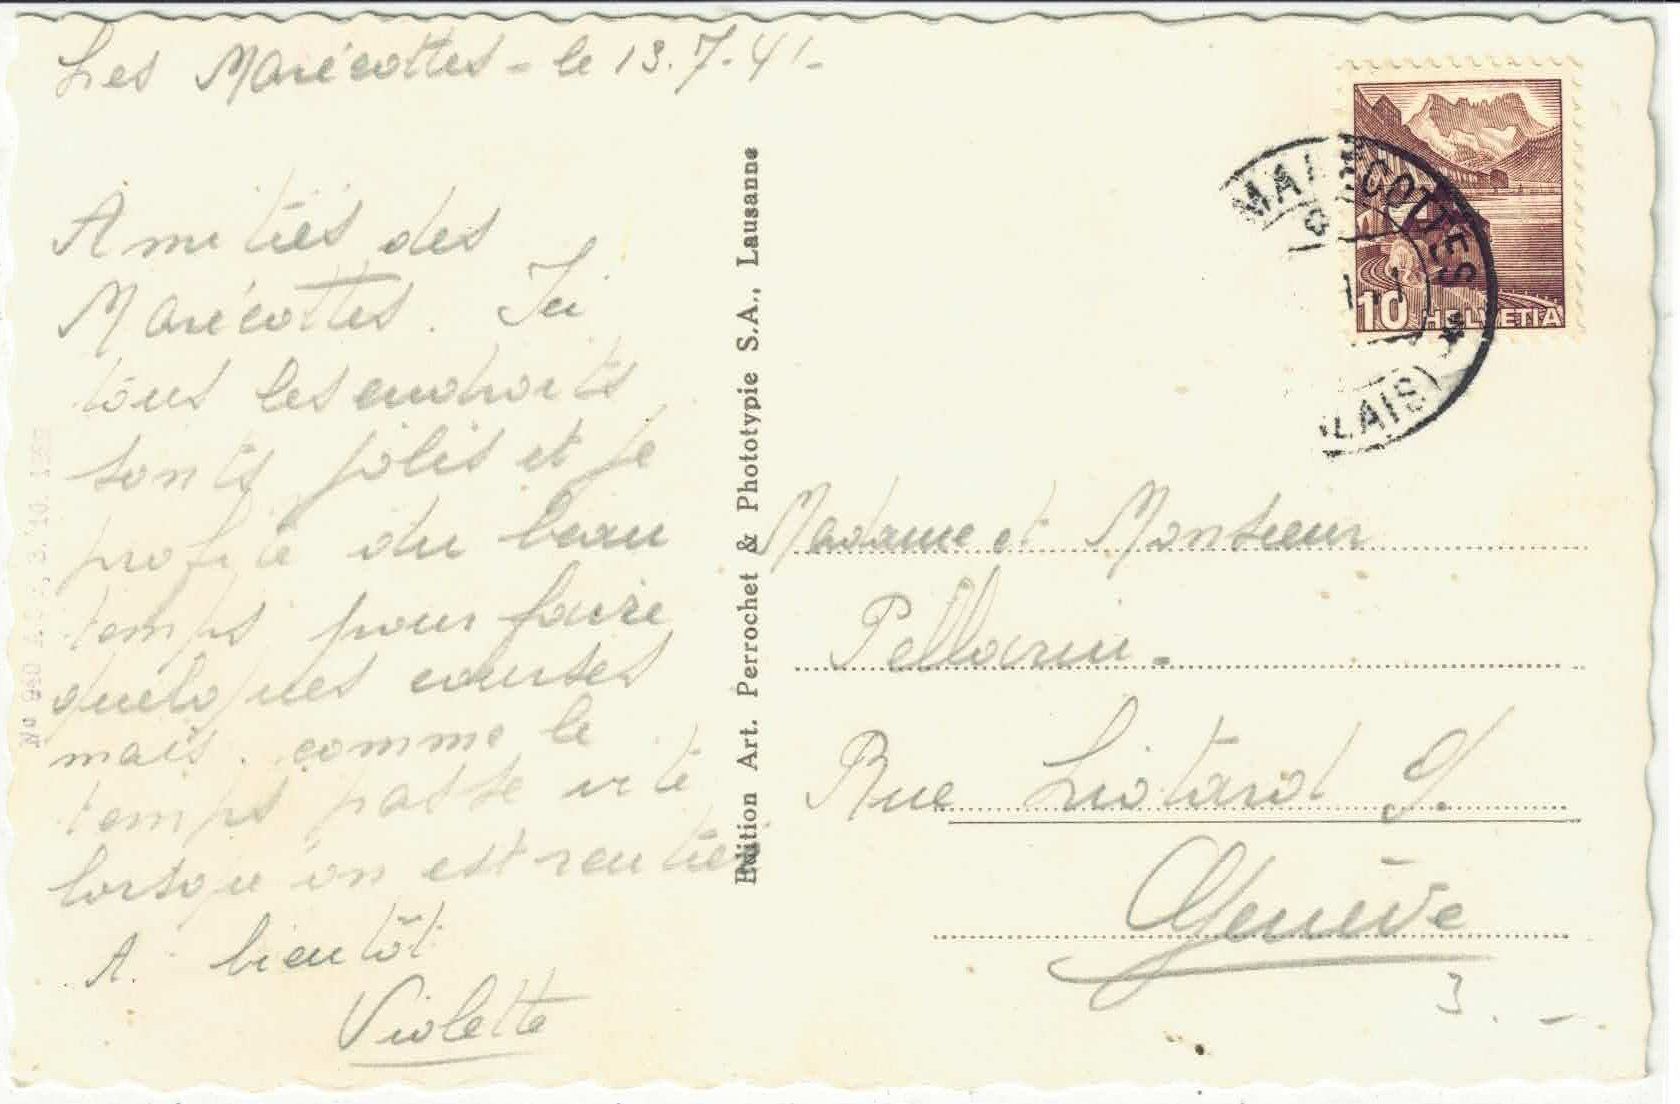 Les Marécottes - le 13.7.41-
Amitiés des
Marécottes. Ici
tous les endroits
sonts jolis et je
profite du beau
temps pour faire
quelques courses
mais comme le
temps passe vite
lorsqu'on est rentier
A bientôt
Violette
Edition Art. Perrochet & Phototypie S.A., Lausanne
MARÉCOTTES
10 HELVETIA
LAIS)
Madame et Monsieur
Pellarin.
Rue Liotard 9.
Genève
3.-